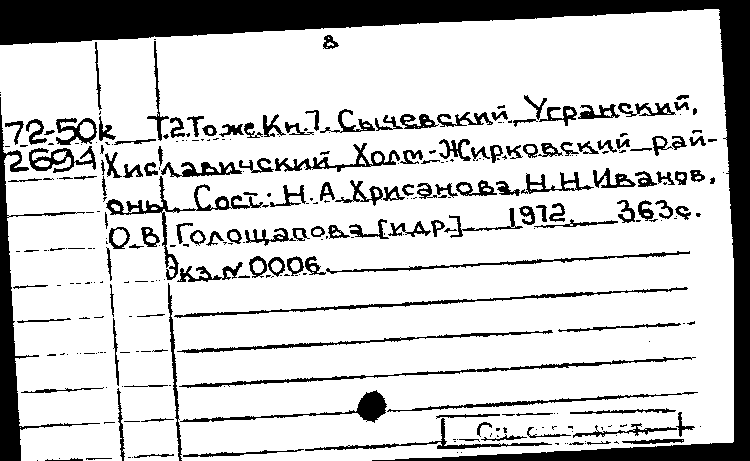 8
72-50к Т.2.То же.Кн.7. Сычевский, Угранский,
2694 Хиславичский, Холм-Жирковский рай-
оны. Сост.: Н.А.Хрисанова, Н.Н.Иванов,
О.В. Голощапова [и др.] 1972. 363с.
Экз.№0006.